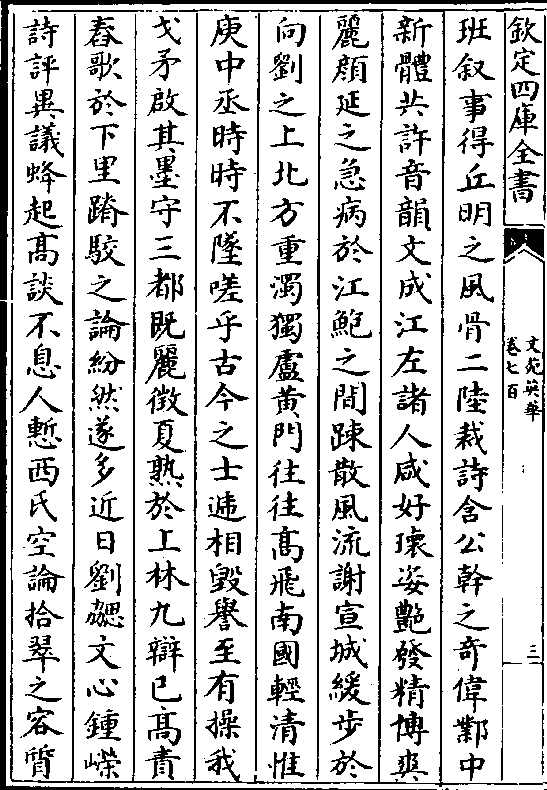 欽定四庫全書
文苑英華
卷七百
三
班叙事得丘明之風骨二陸裁詩含公幹之奇偉鄴中
新體共許音韻文成江左諸人咸好瓌姿艶發精博爽
麗顔延之急病於江鮑之間踈散風流謝宣城緩步於
向劉之上北方重濁獨盧黄門往往髙飛南國輕清惟
庾中丞時時不墜嗟乎古今之士遞相毀譽至有操我
戈矛啟其墨守三都既麗徴夏熟於上林九辯已髙責
春歌於下里踳駮之論紛然遂多近日劉勰文心鍾嶸
詩評異議蜂起髙談不息人慙西氏空論拾翠之容質